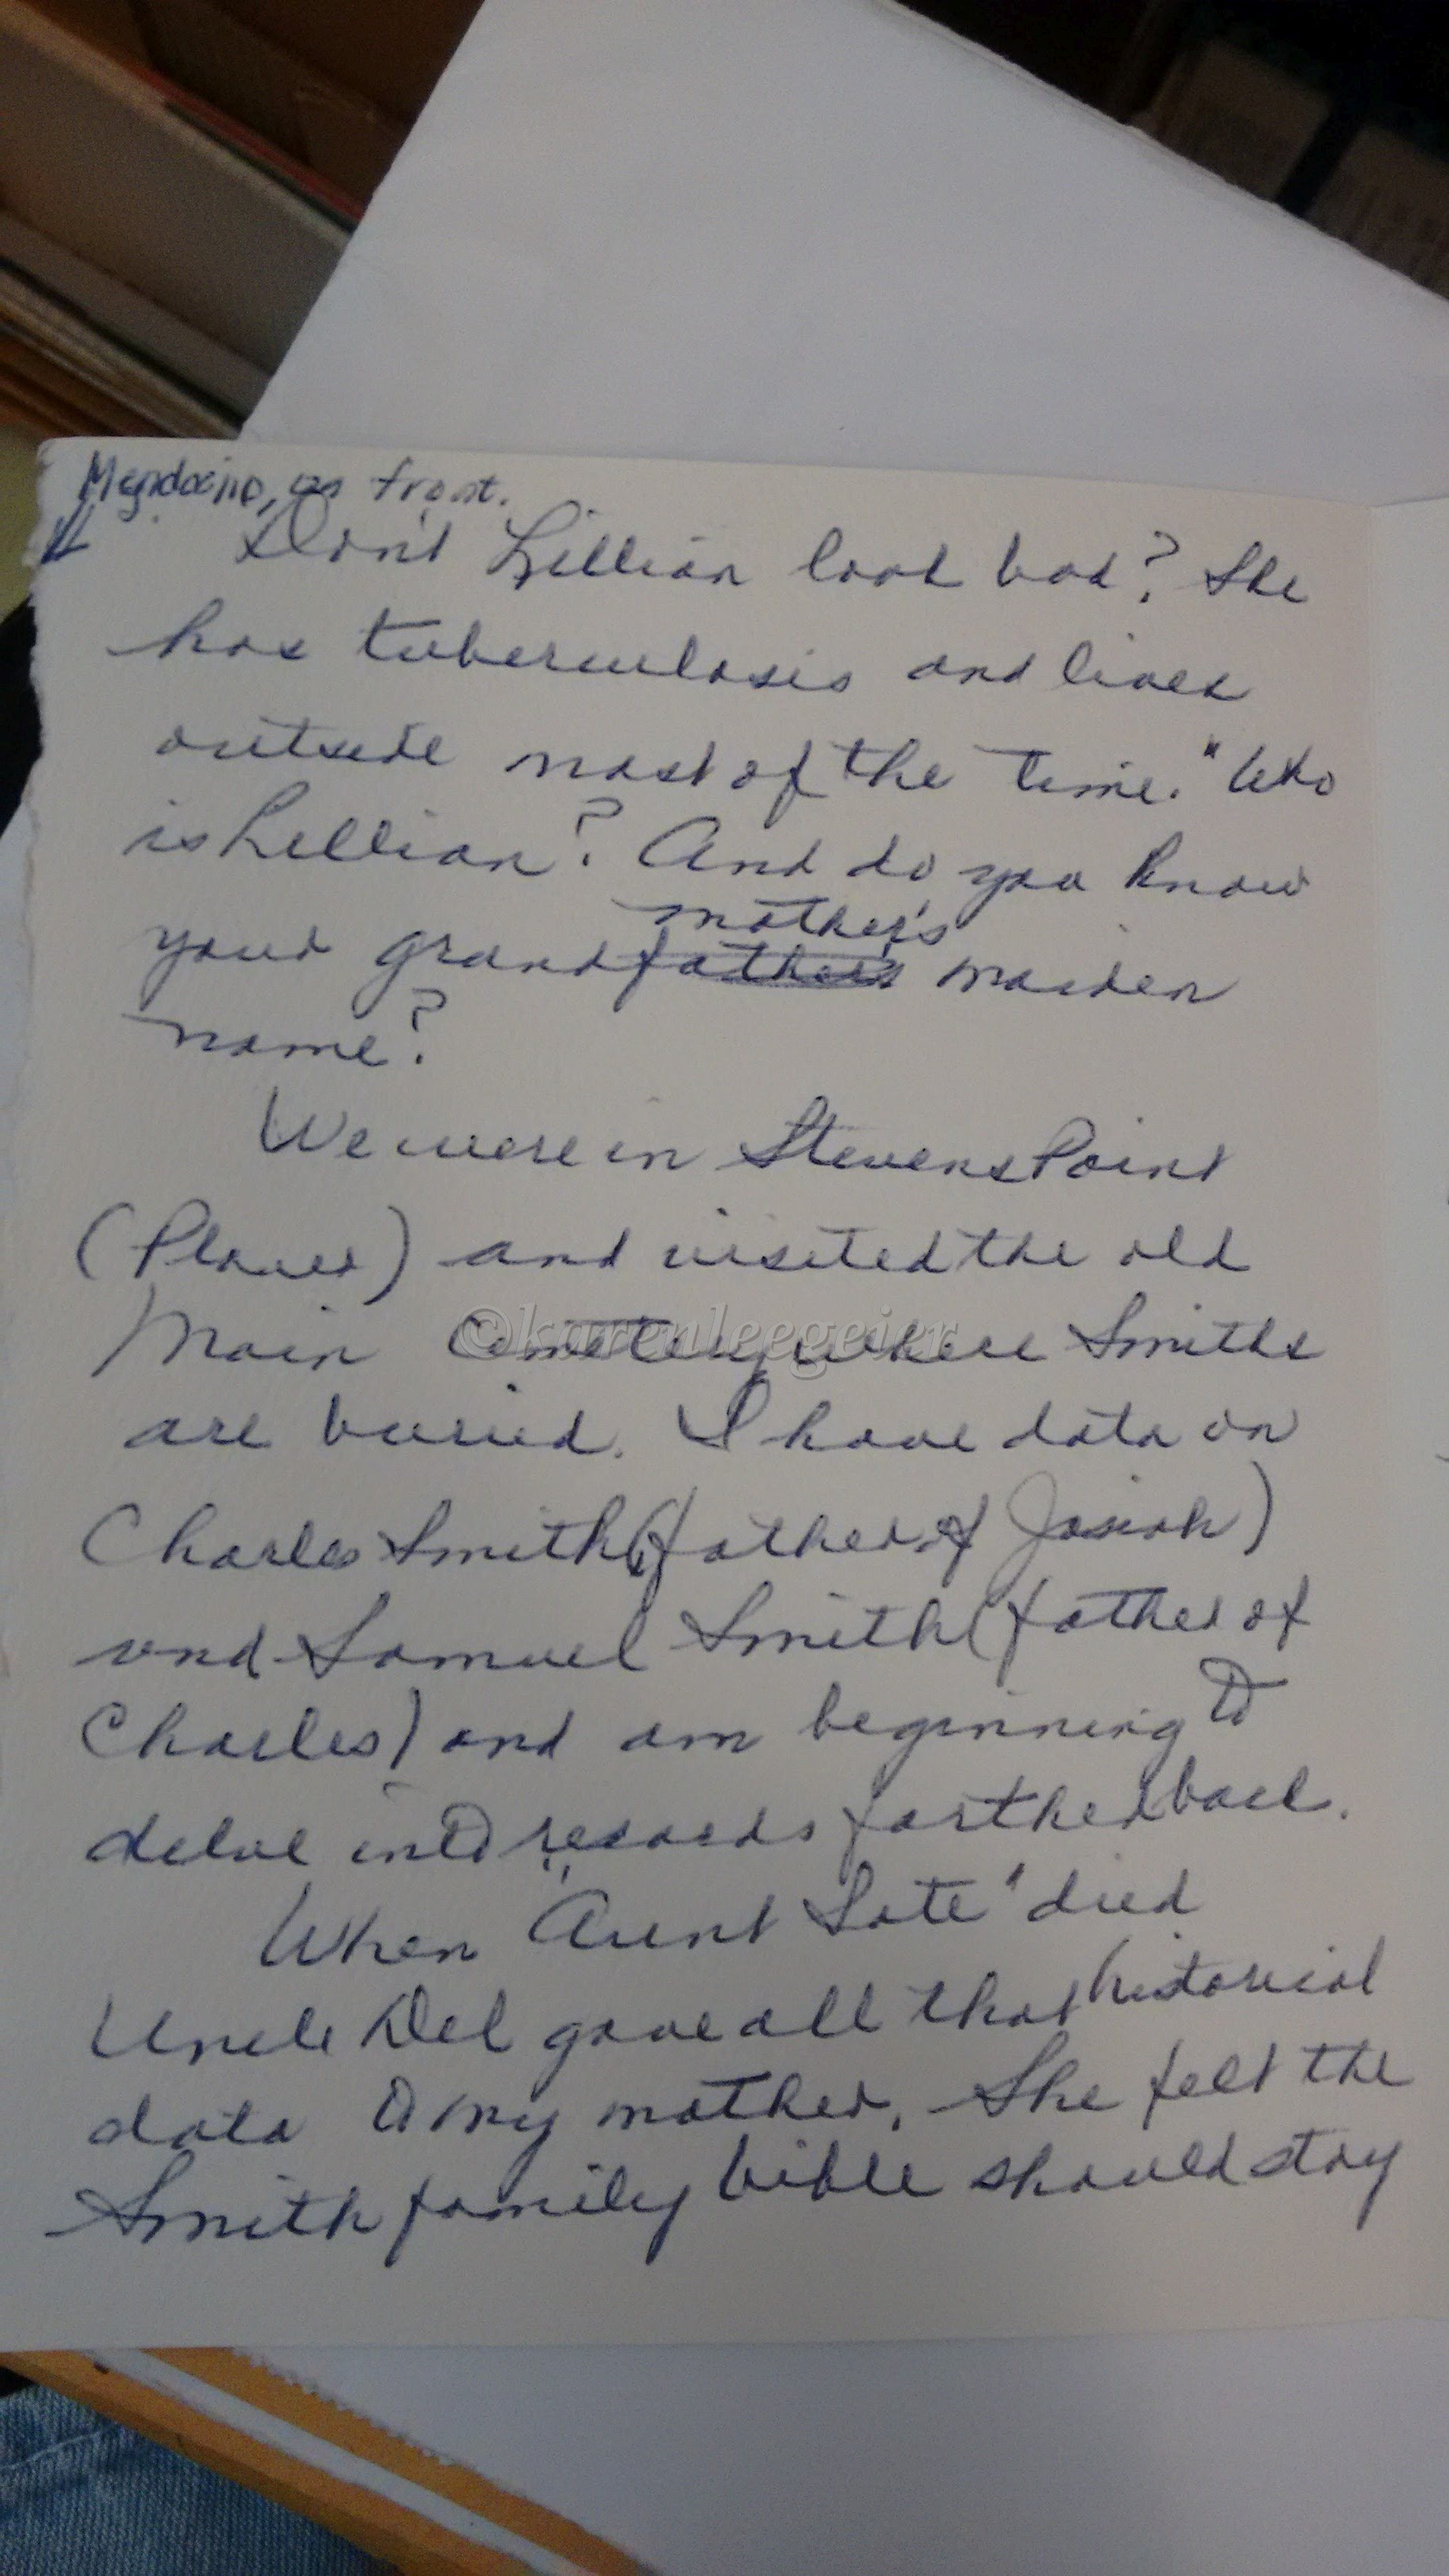 Mendocino, as front.
Don't Lillian look bad? She
has tuberculosis and lives
outside most of the time." Who
is Lillian? And do you know
mother's
your grandfather's maiden
name?
We were in Stevens Point
(Plover) and visited the old
Main Cemetery where Smiths
are buried. I have data on
Charles Smith (father of Josiah)
and Samuel Smith (father of
Charles) and am beginning to
delve into records farther back.
When "Aunt Late" died
Uncle Del gave all that historical
data to my mother. She felt the
Smith family bible should stay
©karenleegeier